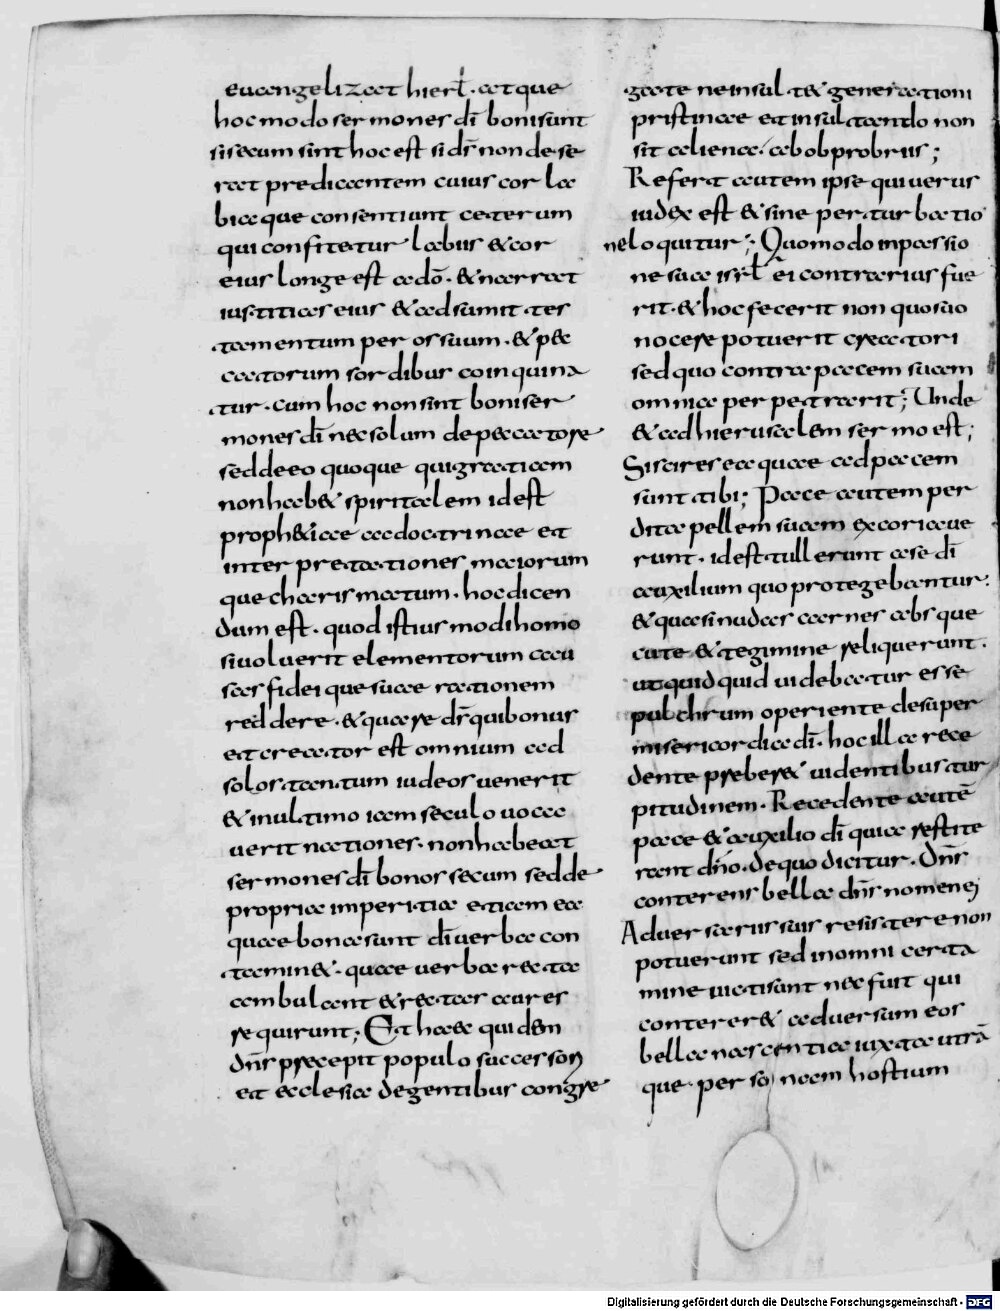 euangelizat hierl̄. atque
hoc modo sermones dī boni sunt
si secum sint hoc est si dr̄ non dese
rat predicantem cuius cor la
biaque consentiunt ceterum
qui confitetur labiis & cor
eius longe est a dō. & narrat
iustitias eius & adsumit tes
tamentum per os suum. & pec
catorum sordibus coinquina
tur. cum hoc non sint boni ser
mones dī nec solum de peccatore
sed de eo quoque qui gratiam
non hab& spiritalem id est
proph&icae ac doctrinae et
interpretationes maiorum
que charismatum. hoc dicen
dum est. quod istius modi homo
si uoluerit elementorum cau
sas fidei que suae rationem
reddere. & quaere dr̄ qui bonus
et creator est omnium ad
solos tantum iudeos uenerit
& in ultimo iam seculo uoca
uerit nationes. non habeat
sermones dī bonos secum sed de
propria imperitia etiam ea
quae bona sunt dī uerba con
tamin&. quae uerba recta
ambulant & rectas aures
requirunt; Et haec quidem
dn̄s precepit populo successori
et ecclesia degentibus congre
gate ne insulte& generationi
pristinae et insultando non
sit aliena. ab obprobriis;
Refert autem ipse qui uerus
iudex est & sine perturbatio
ne loquitur; Quomodo in passio
ne sua isrl̄ ei contrarius fue
rit. & hoc fecerit non quo suo
nocere potuerit creatori
sed quo contra pacem suam
omnia perpetrarit; Unde
& ad hierusalem sermo est;
Si scires ea quae ad pacem
sunt tibi; Pace autem per
dita pellem suam excoriaue
runt. id est tullerunt a se dī
auxilium quo protegebantur.
& quasi nudas carnes absque
cute & tegimine reliquerunt.
ut quidquid uidebatur esse
pulchrum operiente desuper
misericordia dī. hoc illa rece
dente preber& uidentibus tur
pitudinem. Recedente autē
pace & auxilio dī quia restite
rant dn̄o. de quo dicitur. Dn̄s
conterens bella dn̄s nomen ei
Aduersariis suis resistere non
potuerunt sed in omni certa
mine uicti sunt nec fuit qui
conterer& aduersum eos
bella nascentia iuxta utrā
que personam hostium
Digitalisierung gefördert durch die Deutsche Forschungsgemeinschaft - DFG